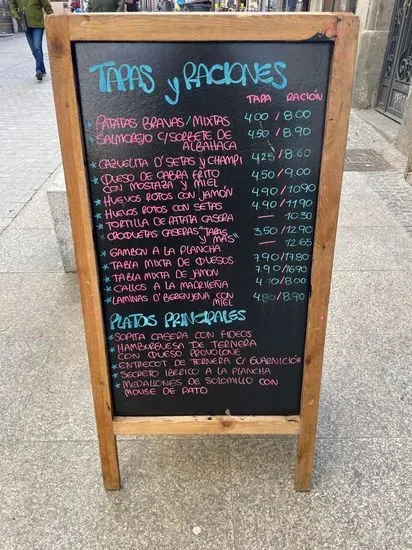 TAPAS y RACIONES
TAPA RACIÓN
* PATATAS BRAVAS/MIXTAS 4.00/8.00
* SALMOREJO C/SORBETE DE ALBAHACA 4.50/8.90
* CAZUELITA D'SETAS Y CHAMPI 4.25/8.60
* QUESO DE CABRA FRITO CON MOSTAZA Y MIEL 4.50/9.00
* HUEVOS ROTOS CON JAMÓN 4.90/10.90
* HUEVOS ROTOS CON SETAS 4.90/11.90
* TORTILLA DE PATATA CASERA — 10.30
* CROQUETAS CASERAS "TAPAS Y MÁS" 3.50/12.90
* GAMBON A LA PLANCHA — 12.65
* TABLA MIXTA DE QUESOS 7.90/17.80
* TABLA MIXTA DE JAMON 7.90/16.90
* CALLOS A LA MADRILEÑA 4.10/8.00
* LAMINAS D'BERENJENA CON MIEL 4.80/8.90
PLATOS PRINCIPALES
* SOPITA CASERA CON FIDEOS
* HAMBURGUESA DE TERNERA
CON QUESO PROVOLONE
* ENTRECOT DE TERNERA C/GUARNICIÓN
* SECRETO IBERICO A LA PLANCHA
* MEDALLONES DE SOLOMILLO CON
MOUSE DE PATO